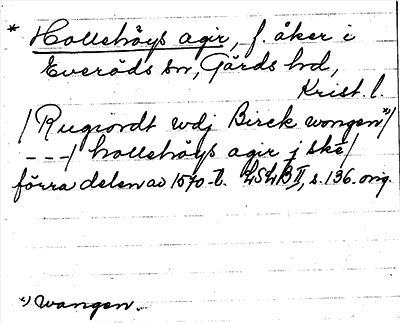 * Hollehöys agir, f. åker i
Everöds sn, Gärds hd,
Krist. l.
/Rugiordt wdj Birck wongen*)/
---/ hollehöys agir j ske/
förra delen av 1570-t. LSLB II, s. 136. orig.
*) wangen.